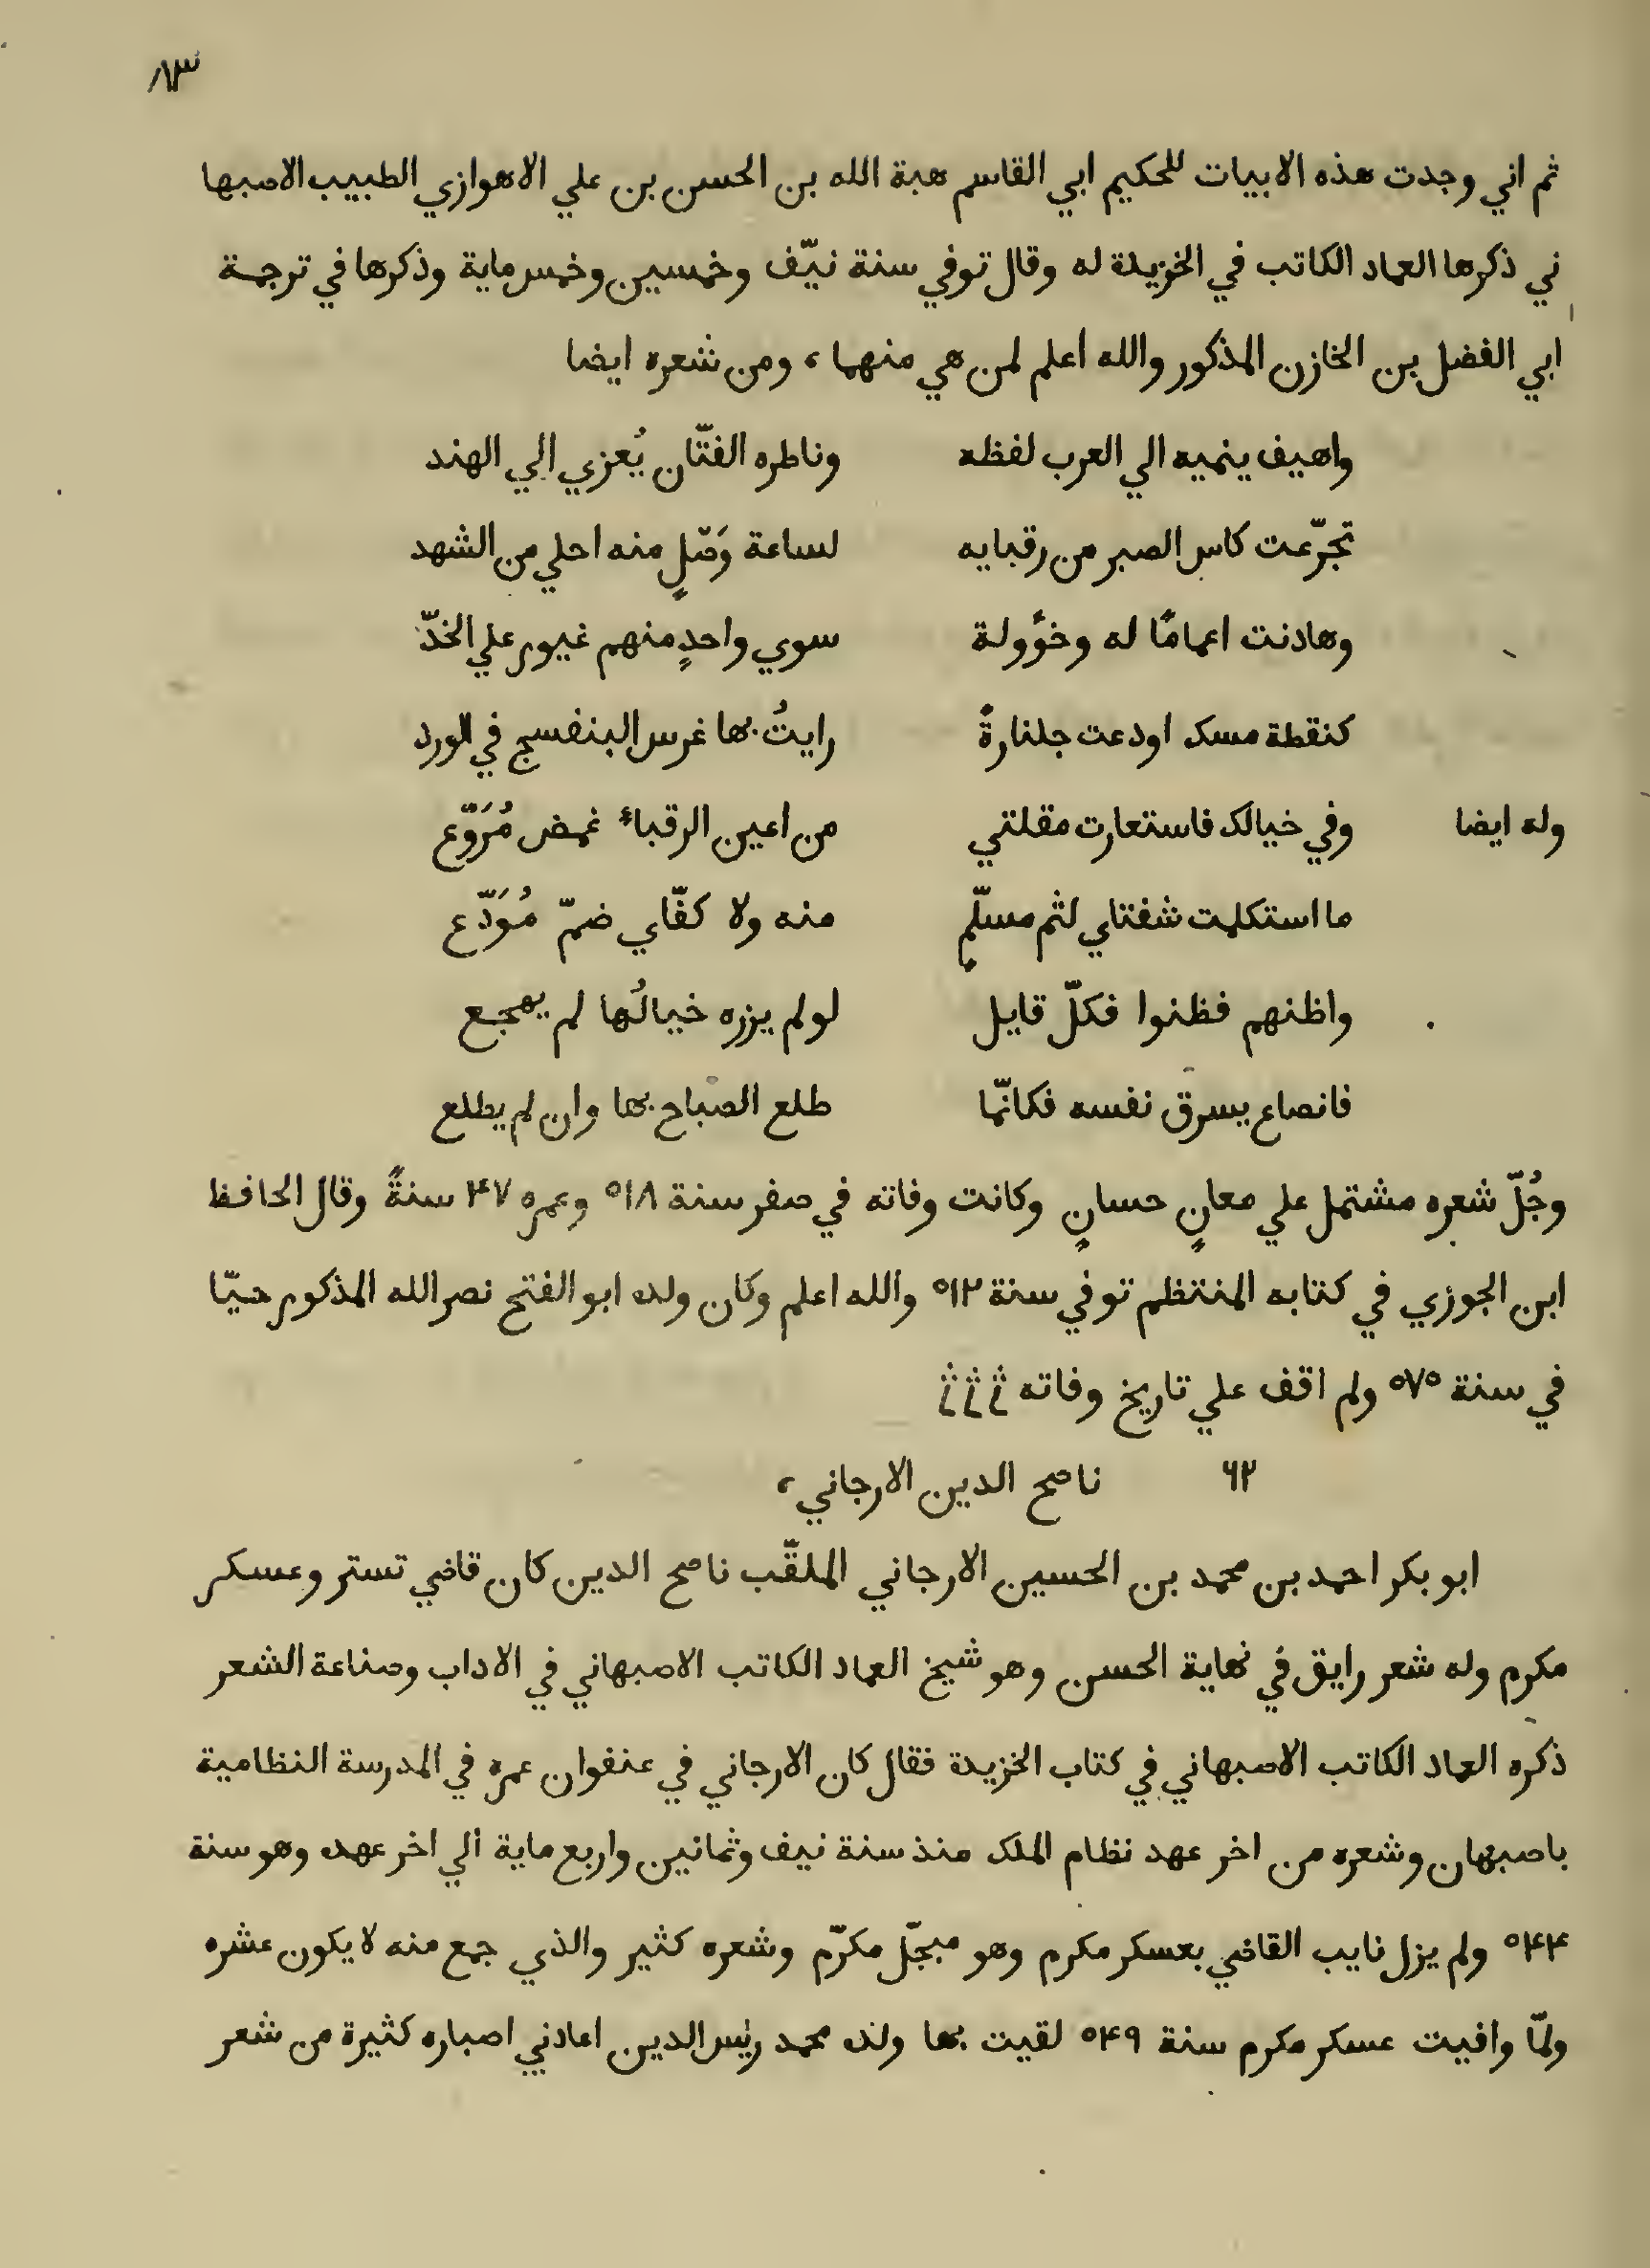 ٨٣
ثم اني وجدت هذه الابيات للحكيم ابي القاسم هبة الله بن الحسن بن علي الاهوازي الطبيب الاصبها
ني ذكرها العماد الكاتب في الخريدة له وقال توفي سنة نيّف وخمسين وخمس ماية وذكرها في ترجمة
ابي الفضل بن الخازن المذكور والله اعلم لمن هي منهما ، ومن شعره ايضا
واهيف ينميه الي العرب لفظه وناظره الفتّان يُعزي الي الهند
تجرّعت كاس الصبر من رقبايه لساعة وَصْلٍ منه احلي من الشهد
وهادنت اعمامًا له وخؤولة سوي واحدٍ منهم غيور علي الخدّ
كنقطة مسك اودعت جلنارةً رايتُ بها غرس البنفسج في الورد
وله ايضا وفي خيالك فاستعارت مقلتي من اعين الرقباء غمض مُرَوّع
ما استكملت شفتاي لثم مسلّمٍ منه ولا كفّاي ضمّ مُوَدّع
واظنهم فظنوا فكلّ قايل لو لم يزره خيالُها لم يهجع
فانصاع يسرق نفسه فكانّما طلع الصباح بها وان لم يطلع
وجُلّ شعره مشتمل علي معانٍ حسانٍ وكانت وفاته في صفر سنة ٥١٨ وعمره ٤٧ سنةً وقال الحافظ
ابن الجوزي في كتابه المنتظم توفي سنة ٥١٢ والله اعلم وكان ولده ابو الفتح نصر الله المذكور حيّا
في سنة ٥٧٥ ولم اقف علي تاريخ وفاته
٦٢ ناصح الدين الارجاني ،
ابو بكر احمد بن محمد بن الحسين الارجاني الملقّب ناصح الدين كان قاضي تستر وعسكر
مكرم وله شعر رايق في نهاية الحسن وهو شيخ العماد الكاتب الاصبهاني في الاداب وصناعة الشعر
ذكره العماد الكاتب الاصبهاني في كتاب الخريدة فقال كان الارجاني في عنفوان عمره في المدرسة النظامية
باصبهان وشعره من اخر عهد نظام الملك منذ سنة نيف وثمانين واربع ماية الي اخر عهده وهو سنة
٥٤٤ ولم يزل نايب القاضي بعسكر مكرم وهو مبجّل مكرّم وشعره كثير والذي جمع منه لا يكون عشره
ولمّا وافيت عسكر مكرم سنة ٥٤٩ لقيت بها ولده محمد رئيس الدين اعادني اصباره كثيرة من شعر